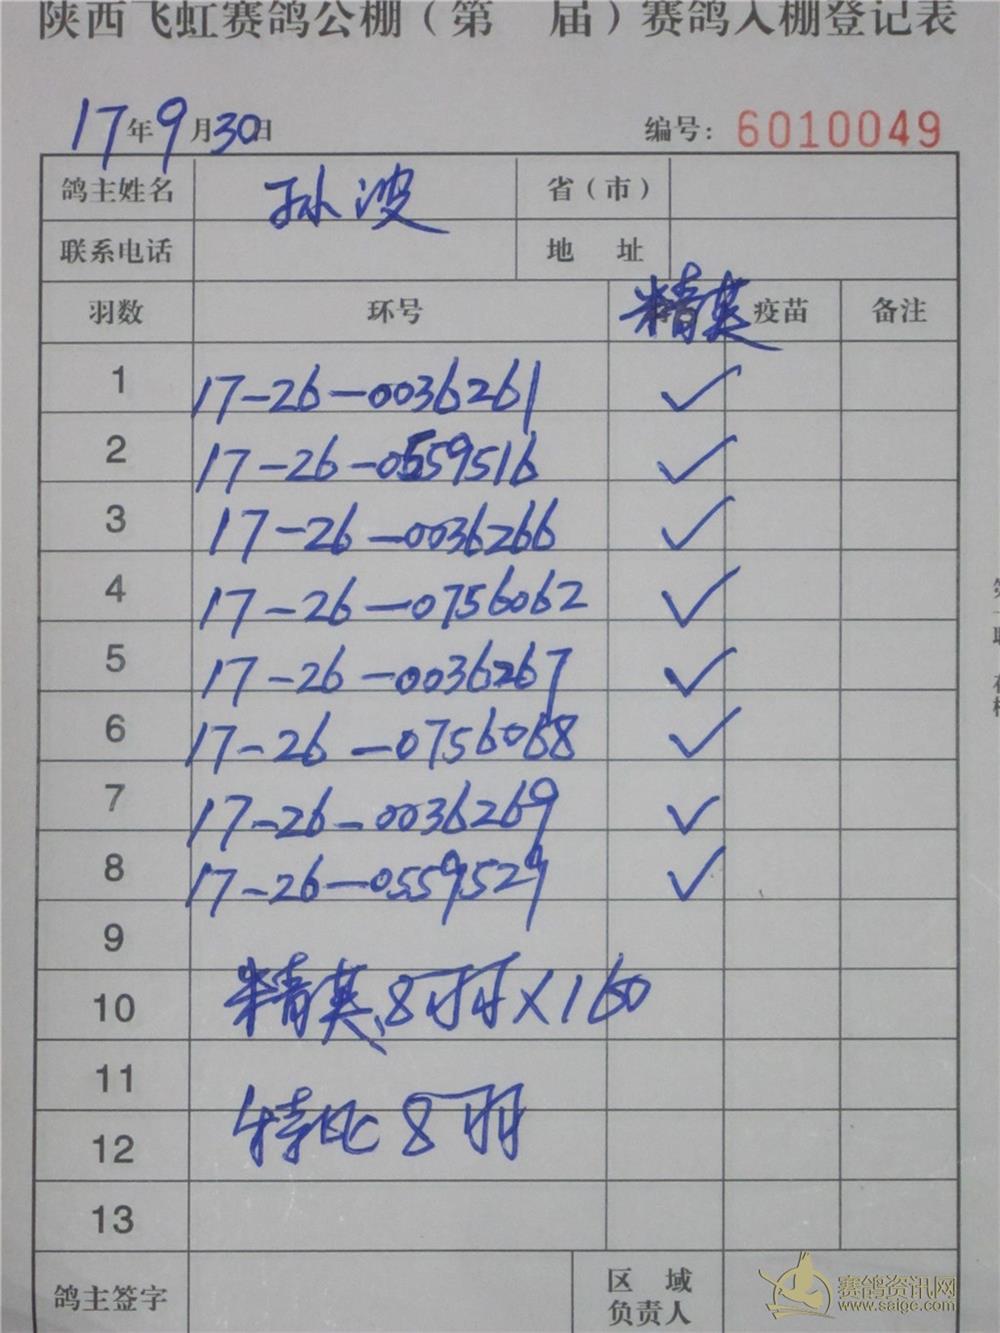 陕西飞虹赛鸽公棚（第 届）赛鸽入棚登记表
17年9月30日 编号：6010049
鸽主姓名 孙波 省（市）
联系电话 地 址
羽数 环号 精英 疫苗 备注
1 17-26-0036261 ✓
2 17-26-0559516 ✓
3 17-26-0036266 ✓
4 17-26-0756062 ✓
5 17-26-0036267 ✓
6 17-26-0756068 ✓
7 17-26-0036269 ✓
8 17-26-0559529 ✓
9
10 精英8羽×160
11
12 特比8羽
13
鸽主签字 区 域
负责人
赛鸽资讯网
www.saigc.com